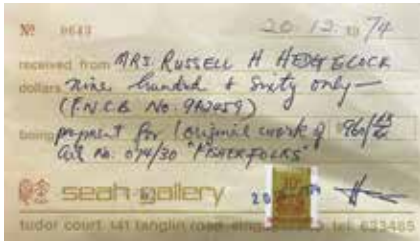 Nº 0643 20.12.1974
received from MRS. RUSSELL H HEDGELOCK
dollars nine hundred & sixty only —
(F.N.C.B No.
being payment for 1 original work of
art no. 074/30 "FISHERFOLKS"
seah gallery
tudor court 141 tanglin road tel.